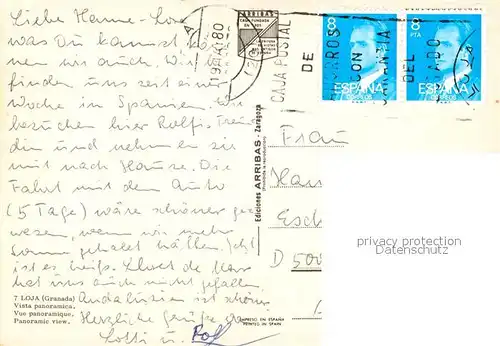 Liebe Hanne-Lo
was Du kannst kö
nen wir auch. Wir
finden uns seit einer
Woche in Spanien. Wir
besuchen hier Rolfs Freun
din und nehmen sie
mit nach Hause. Die
Fahrt mit dem Auto
(5 Tage) wäre schöner ge
wesen, wenn wir mehr
Sonne gehabt hätten. Jetzt
ist es heiß. de Mar
hat uns auch nicht gefallen.
Andalusien ist schön.
Herzliche Grüße
Lotti u. Rolf
7 LOJA (Granada)
Vista panoramica.
Vue panoramique.
Panoramic view.
Ediciones ARRIBAS - Zaragoza
ARRIBAS
CASA FUNDADA
80
CAJA POSTAL
DE
AHORROS
CON
GARANTIA
DEL
ESTADO
8
PTA
ESPAÑA
8
PTA
ESPAÑA
Frau
Han
Esch
D 500
privacy protection
Datenschutz
IMPRESO EN ESPAÑA
PRINTED IN SPAIN